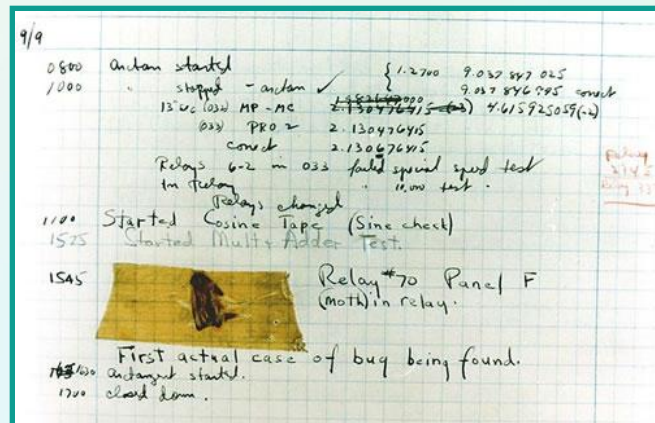 9/9
0800 antan started
1000 " stopped - antan ✓ { 1.2700 9.037 847 025
9.037 846 995 conect
13" uc (032) MP - MC 2.130476415 4.615925059(-2)
(033) PRO 2 2.130476415
conect 2.130676415
Relays 6-2 in 033 failed special speed test
in Relay " 10.000 test.
Relays changed
1100 Started Cosine Tape (Sine check)
1525 Started Mult + Adder Test.
1545 Relay #70 Panel F
(moth) in relay.
First actual case of bug being found.
1630 antangent started.
1700 closed down.
Relay